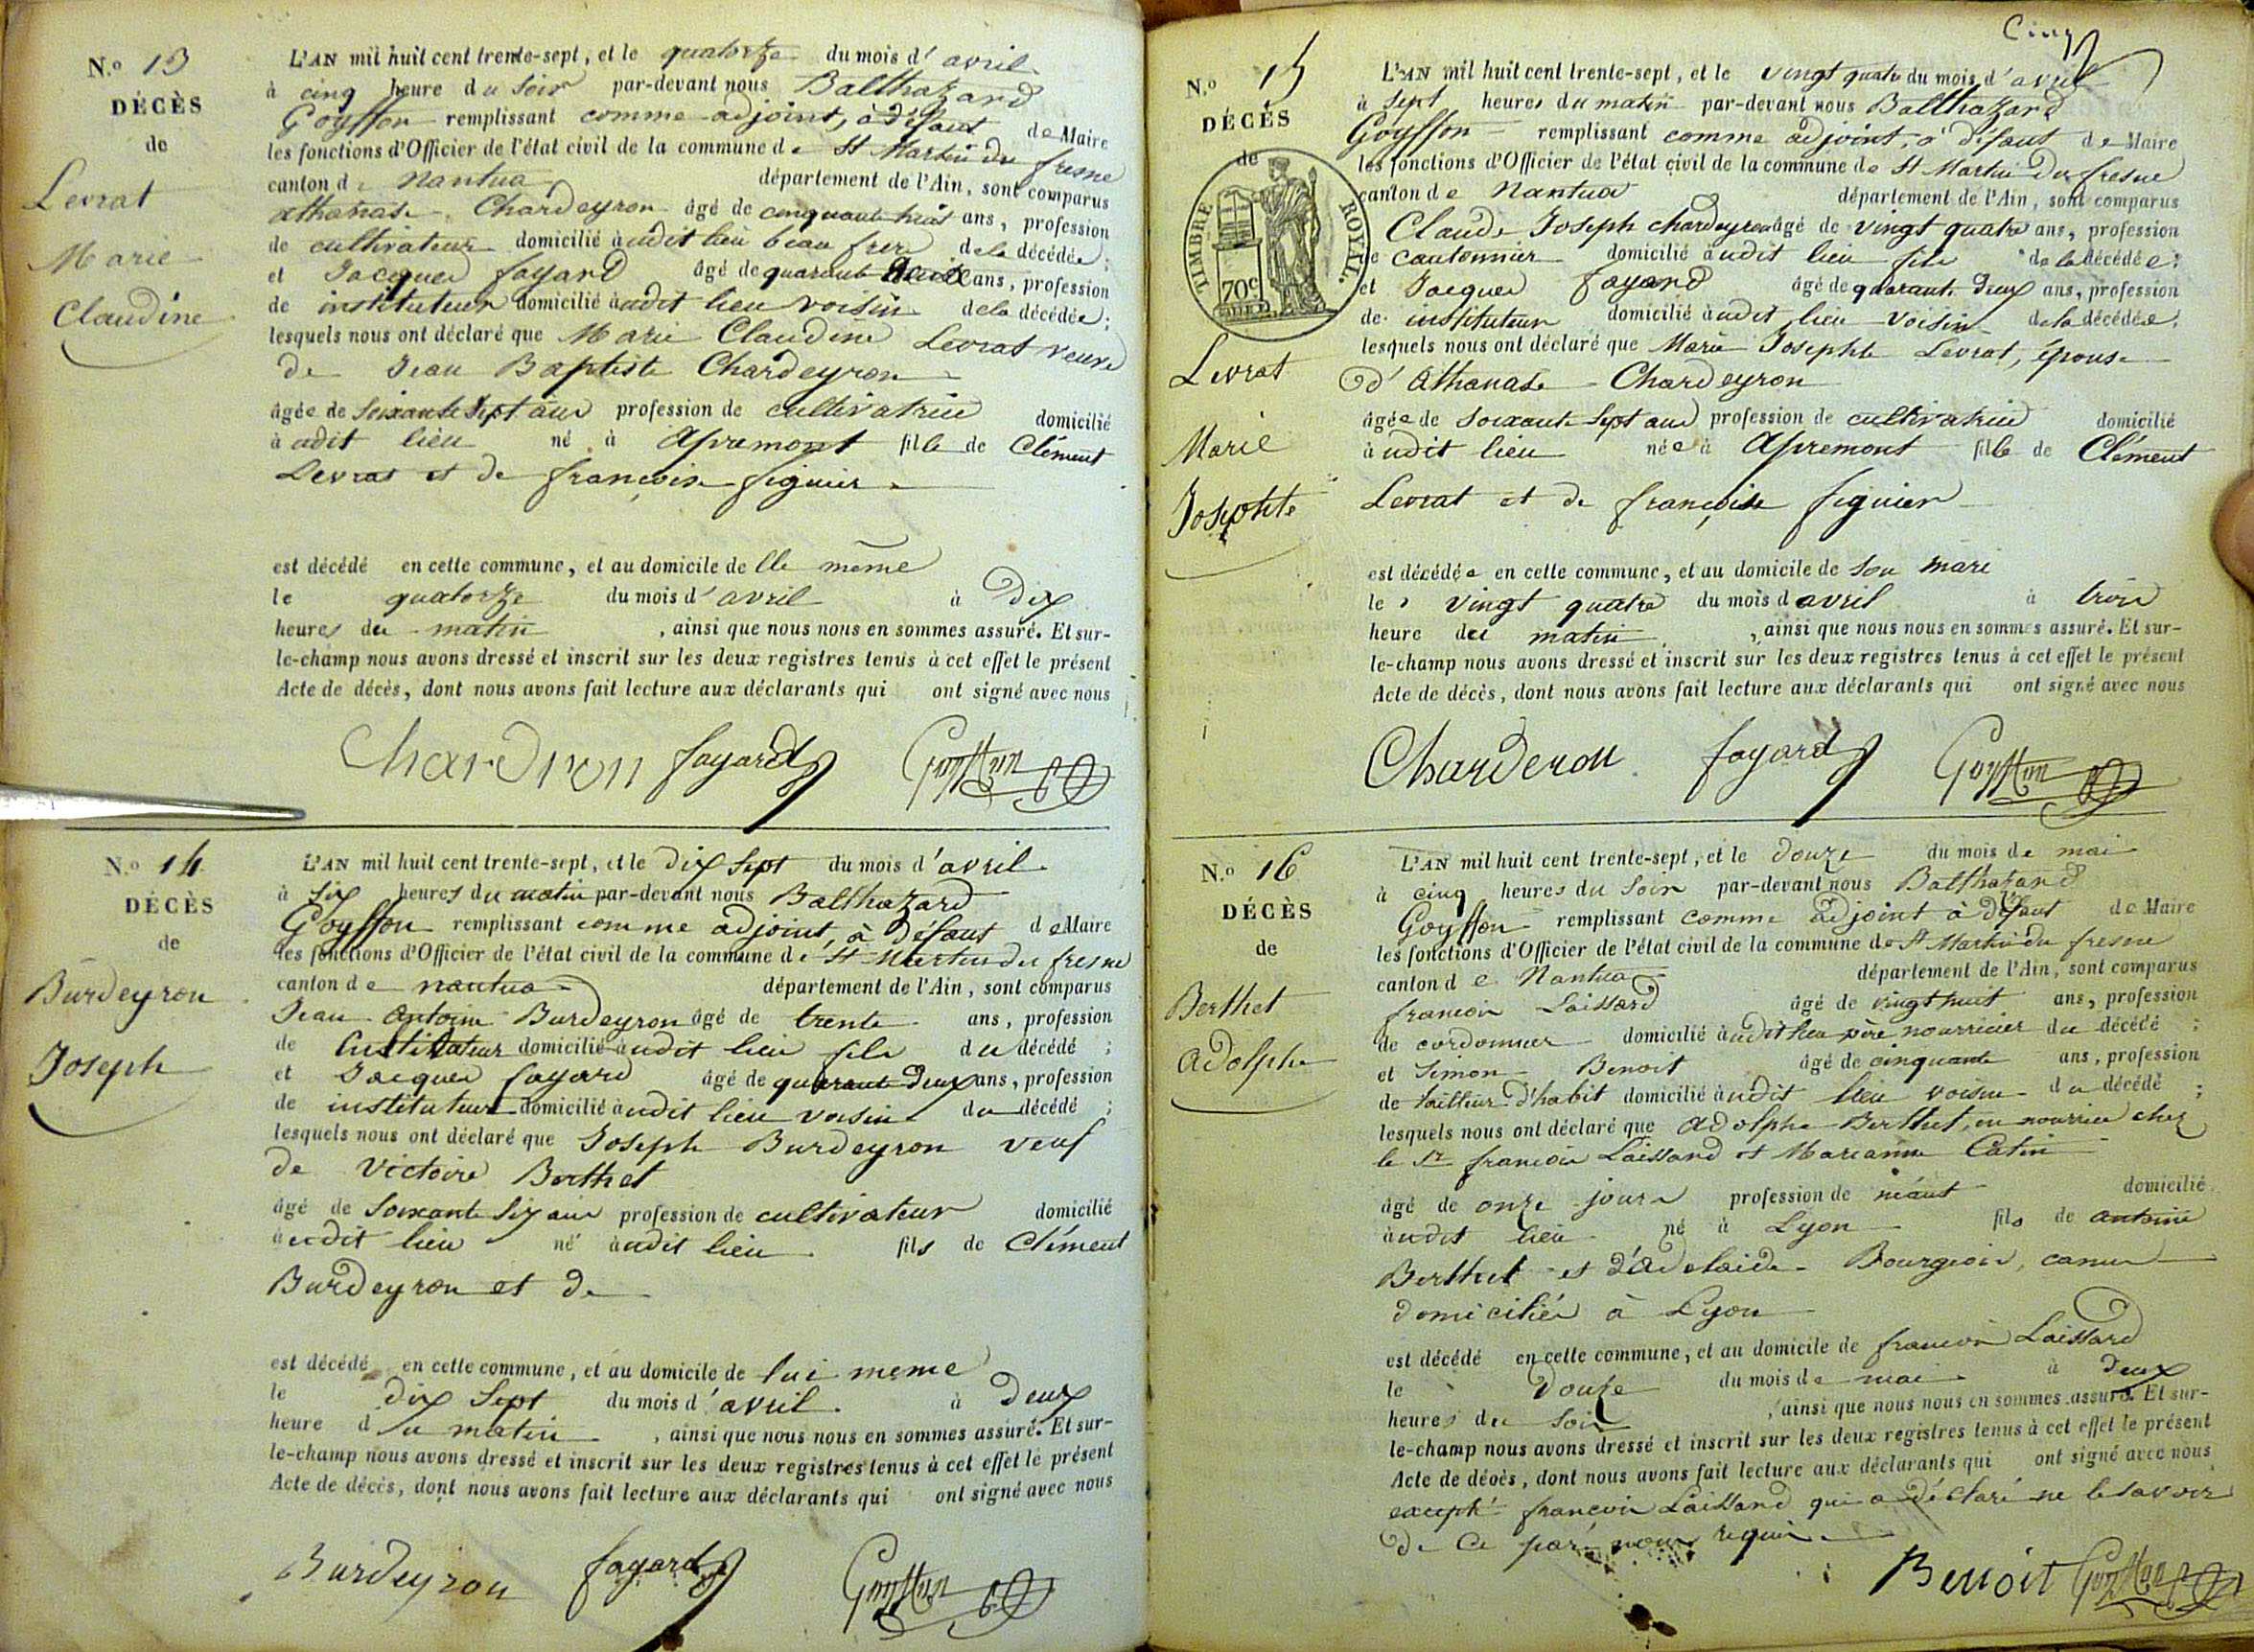 N.o 13
DÉCÈS
de
Levrat
Marie
Claudine
L'AN mil huit cent trente-sept, et le quatorze du mois d'avril
à cinq heure du soir par-devant nous Balthazard
Goyffon remplissant comme adjoint, à défaut de Maire
les fonctions d'Officier de l'état civil de la commune de St Martin du fresne
canton de Nantua département de l'Ain, sont comparus
athanase Chardeyron âgé de cinquante huit ans, profession
de cultivateur domicilié audit lieu beau frere de la décédée;
et Jacques fayard âgé de quarante deux ans, profession
de instituteur domicilié audit lieu voisin de la décédée;
lesquels nous ont déclaré que Marie Claudine Levrat veuve
de Jean Baptiste Chardeyron
âgée de soixante sept ans profession de cultivatrice domicilié
audit lieu né à Apremont fille de Clément
Levrat et de françoise figuier
est décédé en cette commune, et au domicile de lle même
le quatorze du mois d'avril à dix
heures du matin, ainsi que nous nous en sommes assuré. Et sur-
le-champ nous avons dressé et inscrit sur les deux registres tenus à cet effet le présent
Acte de décès, dont nous avons fait lecture aux déclarants qui ont signé avec nous
Chardron fayard Goyffon
N.o 14
DÉCÈS
de
Burdeyron
Joseph
L'AN mil huit cent trente-sept, et le dix sept du mois d'avril
à six heures du matin par-devant nous Balthazard
Goyffon remplissant comme adjoint, à défaut de Maire
les fonctions d'Officier de l'état civil de la commune de St Martin du fresne
canton de nantua département de l'Ain, sont comparus
Jean Antoine Burdeyron âgé de trente ans, profession
de Cultivateur domicilié audit lieu fils du décédé;
et Jacques fayard âgé de quarante deux ans, profession
de instituteur domicilié audit lieu voisin du décédé;
lesquels nous ont déclaré que Joseph Burdeyron veuf
de Victoire Berthet
âgé de soixante six ans profession de cultivateur domicilié
audit lieu né audit lieu fils de Clément
Burdeyron et de
est décédé en cette commune, et au domicile de lui meme
le dix sept du mois d'avril à deux
heure du matin, ainsi que nous nous en sommes assuré. Et sur-
le-champ nous avons dressé et inscrit sur les deux registres tenus à cet effet le présent
Acte de décès, dont nous avons fait lecture aux déclarants qui ont signé avec nous
Burdeyron fayard Goyffon
Cinq
N.o 15
DÉCÈS
de
TIMBRE ROYAL.
70c
Levrat
Marie
Josephte
L'AN mil huit cent trente-sept, et le vingt quatre du mois d'avril
à sept heures du matin par-devant nous Balthazard
Goyffon remplissant comme adjoint, à défaut de Maire
les fonctions d'Officier de l'état civil de la commune de St Martin du fresne
canton de Nantua département de l'Ain, sont comparus
Claude Joseph chardeyron âgé de vingt quatre ans, profession
de cantonnier domicilié audit lieu fils de la décédée;
et Jacques fayard âgé de quarante deux ans, profession
de instituteur domicilié audit lieu voisin de la décédée;
lesquels nous ont déclaré que Marie Josephte Levrat, épouse
d'Athanase Chardeyron
âgée de soixante sept ans profession de cultivatrice domicilié
audit lieu née à Apremont fille de Clément
Levrat et de françoise figuier
est décédée en cette commune, et au domicile de son mari
le vingt quatre du mois d avril à trois
heure du matin, ainsi que nous nous en sommes assuré. Et sur-
le-champ nous avons dressé et inscrit sur les deux registres tenus à cet effet le présent
Acte de décès, dont nous avons fait lecture aux déclarants qui ont signé avec nous
Charderon fayard Goyffon
N.o 16
DÉCÈS
de
Berthet
Adolphe
L'AN mil huit cent trente-sept, et le douze du mois de mai
à cinq heures du soir par-devant nous Balthazard
Goyffon remplissant comme adjoint à défaut de Maire
les fonctions d'Officier de l'état civil de la commune de St Martin du fresne
canton de Nantua département de l'Ain, sont comparus
françois Laissard âgé de vingt huit ans, profession
de cordonnier domicilié audit lieu père nourricier du décédé;
et Simon Benoit âgé de cinquante ans, profession
de tailleur d'habit domicilié audit lieu voisin du décédé;
lesquels nous ont déclaré que Adolphe Berthet, en nourrice chez
le Sr françois Laissard et Marianne Catin
âgé de onze jours profession de néant domicilié
audit lieu né à Lyon fils de antoine
Berthet et d'Adelaide Bourgeois,
domiciliés à Lyon
est décédé en cette commune, et au domicile de françois Laissard
le douze du mois de mai à deux
heures du soir, ainsi que nous nous en sommes assuré. Et sur-
le-champ nous avons dressé et inscrit sur les deux registres tenus à cet effet le présent
Acte de décès, dont nous avons fait lecture aux déclarants qui ont signé avec nous
excepté françois Laissard qui a déclaré ne le savoir
de ce par nous requis
Benoit Goyffon